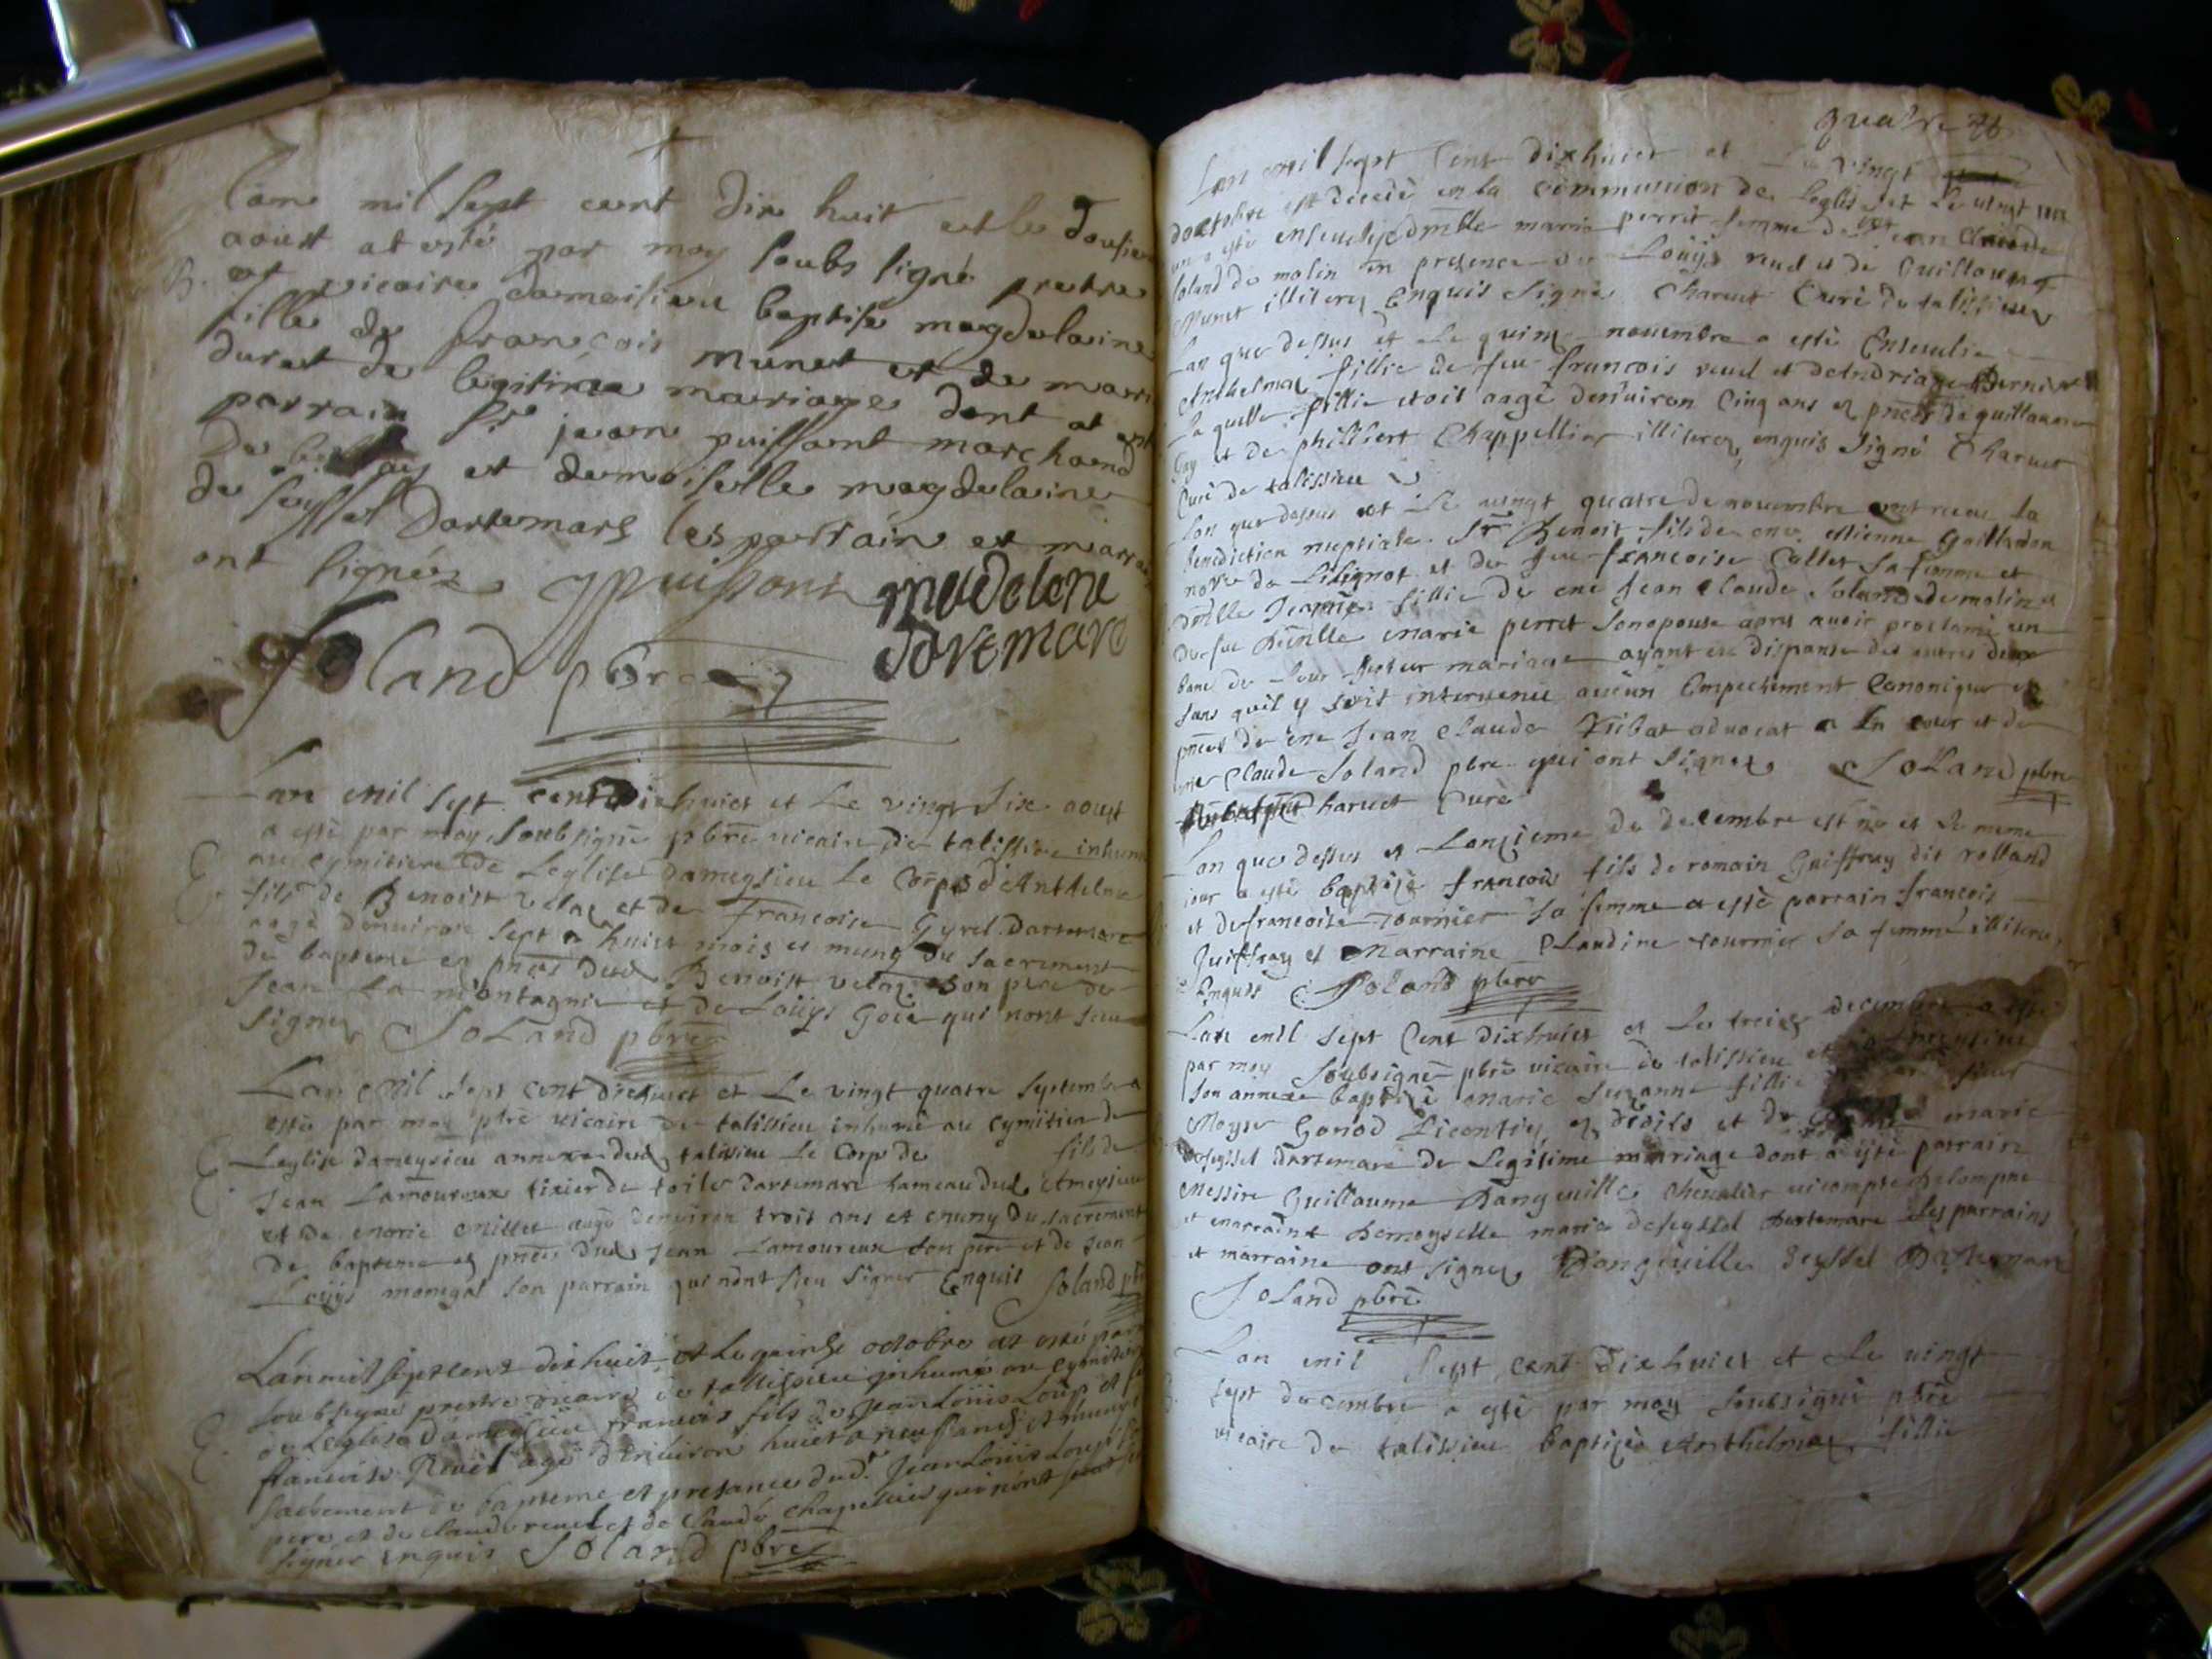 Lan mil sept cent dix huit et le dousie
aoust at esté par moy soubs signé pretre
B. et vicaire dameisieu baptisé magdelaine
fille de francois munet et de marri
durat de legitime mariage dont at esté
parrain Sr jean puissant marchand
de et demoiselle magdelaine
de seyssel dartemars les parrain et marrain
ont signéz JPuissant madelene
dartemare
Soland pbre
Lan mil sept cent dixhuict et Le vingt six aoust
a esté par moy soubsigné pbre vicaire de talissieu inhumé
au cymitiere de Leglise dameysieu Le Corps dAnthelme
fils de Benoist velaz et de Francoise Gyrel dartemare
aagé denuiron sept a huict mois et muny du sacrement
de bapteme es pnces dud Benoist velaz son pere de
Jean La montagnie et de Loüys Goie qui nont sceu
signer Soland pbre
Lan Mil sept cent dixhuict et Le vingt quatre septembre a
esté par moy pbre vicaire de talissieu inhumé au cymitiere de
Leglise dameysieu annexe dud talissieu Le Corps de fils de
Jean Lamoureux tixier de toile dartemare hameau dud Ameysieu
et de marie millet aagé denuiron trois ans et muny du sacrement
de bapteme es pnces dud Jean Lamoureux son pere et de Jean
Loüys monegat son parrain qui nont sceu signer Enquis Soland pbre
Lan mil sept cent dix huit et le quinse octobre at esté par
soubsigné prestre vicaire de tallissieu inhumé au cymitiere
de Leglise dameisieu francois fils de Jean Louis Loup et de
francoise Reuel agé denuiron huict a neuf ans et muny
sacrement de bapteme et presance dud. Jean Louis Loup
pere et de claude reuel et de Claude chapellier qui nont sceut
signer enquis Soland pbre
quatre
Lan mil sept Cent dixhuict et Le vingt
doctobre est decedé en la communion de Leglise et Le vingt
a esté enseuelye dmlle marie perret femme de Jean Claude
soland du molin en presence de Loüys reuel et de Guillaume
Munet illiterez Enquis Signé Charuet Curé de talissieu
Lan que dessus et Le quinz nouembre a esté Enseuelie
Anthelmaz fillie de feu francois reuel et dAndriaze Bernier
la quelle fillie etoit aagé denuiron Cinq ans es pnces de guillaume
Gay et de philibert Chappellier illiterez enquis Signé Charuet
Curé de talissieu
Lan que dessus et Le vingt quatre de nouembre ont receu la
Benediction nuptiale Sr Benoit fils de me etienne Gaillardon
nore de Lilignot et de feu francoise Callet sa femme et
dmlle Jeanne fillie de me Jean Claude Soland du molin et
de feu Dmlle marie perret son epouse apres auoir proclamé un
banc de leur futeur mariage ayant eu dispanse des autres deux
sans quil y soit interuenu aucun Empechement Canonique es
pnces de me Jean Claude Tribat aduocat a la cour et de
me Claude Soland pbre qui ont signez Soland pbre
Charuet Curé
Lan que dessus et Lonzieme de decembre est né et le meme
iour a esté baptisé francois fils de romain Guiffray dit rolland
et de francoise Tournier sa femme a esté parrain francois
Guiffray et Marraine Claudine tournier sa femme illiterez
Enquis Soland pbre
Lan mil sept Cent dixhuict et Le treize decembre a esté
par moy soubsigné pbre vicaire de talissieu et
son annexe baptisé marie Suzanne fillie
Moyse Gonod Licentié es droits et de marie
deseyssel dartemare de Legitime mariage dont a esté parrain
Messire Guillaume Dangeuille Cheualier vicompte delompne
et marraine Demoyselle marie deseyssel dartemare Les parrains
et marraine ont signez Dangeuille Seyssel Dartemare
Soland pbre
Lan mil sept cent dixhuict et Le uingt
sept decembre a esté par moy soubsigné pbre
vicaire de talissieu baptizée Anthelmaz fillie